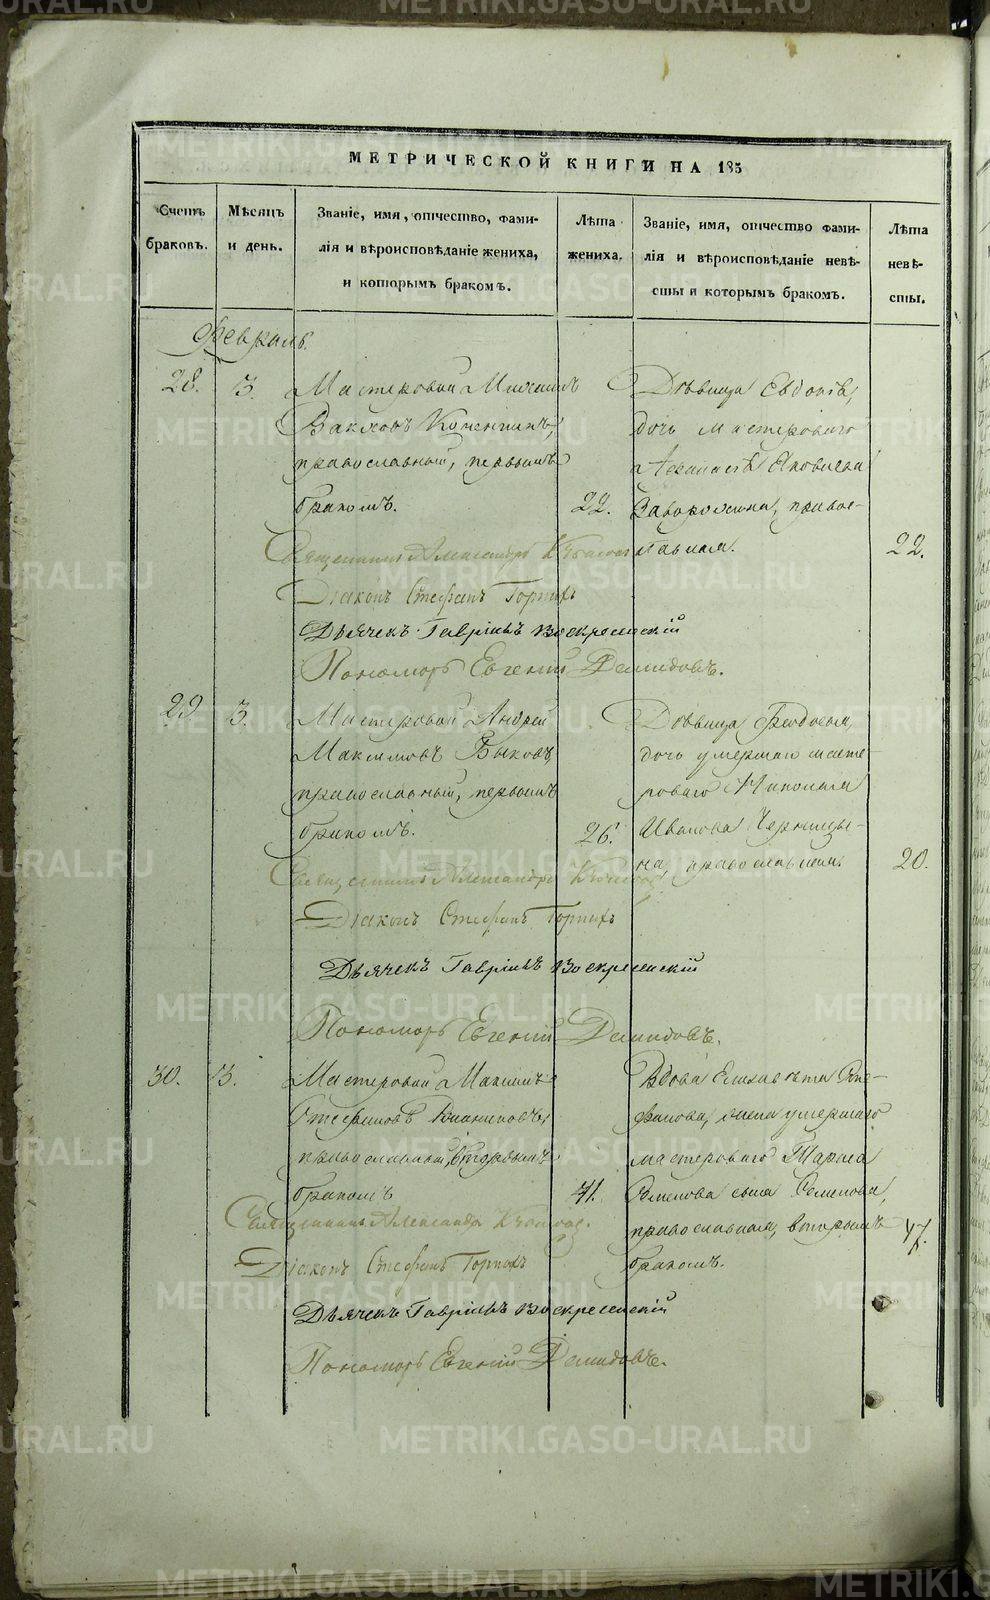 МЕТРИЧЕСКОЙ КНИГИ НА 185
Счетъ браковъ.
Мѣсяцъ и день.
Званіе, имя, отчество, фами-
лія и вѣроисповѣданіе жениха,
и которымъ бракомъ.
Лѣта жениха.
Званіе, имя, отчество фами-
лія и вѣроисповѣданіе невѣ-
сты и которымъ бракомъ.
Лѣта невѣ-
сты.
Февраль.
28.
3.
Мастеровой
православный, первымъ
бракомъ.
22.
Дѣвица Евдокія,
дочь мастероваго
Яковлева
правос-
лавная.
22.
Священникъ Александръ
Діаконъ Стефанъ Горныхъ
Дьячекъ Гавріилъ Воскресенскій
Пономарь Евгений Демидовъ.
29
3.
Мастеровой Андрей
Максимовъ Быковъ,
православный, первымъ
бракомъ.
26.
Дѣвица Феодосья,
дочь умершаго масте-
роваго Николая
Иванова Черницы-
на, православная
20.
Священникъ Александръ
Діаконъ Стефанъ Горныхъ
Дьячекъ Гавріилъ Воскресенскій
Пономарь Евгений Демидовъ.
30.
3.
Мастеровой Максимъ
Стефановъ
православный, вторымъ
бракомъ
41.
Вдова Елизавета Сте-
фанова, жена умершаго
мастероваго Тараса
Семенова сына Семенова,
православная, вторымъ
бракомъ.
47.
Священникъ Александръ
Діаконъ Стефанъ Горныхъ
Дьячекъ Гавріилъ Воскресенскій
Пономарь Евгений Демидовъ.
METRIKI.GASO-URAL.RU